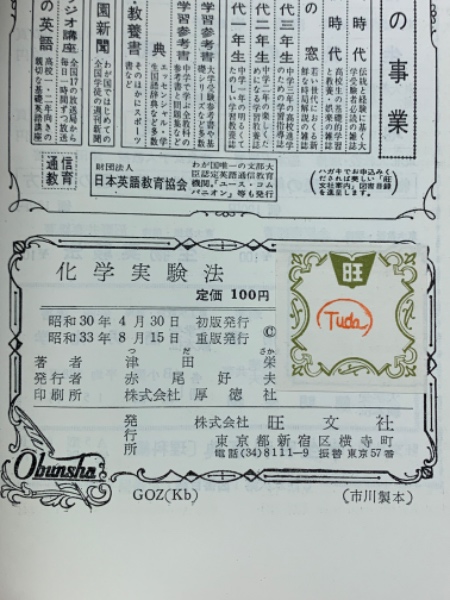 の事業
時代 伝統と経験に基く大
学受験者必読の雑誌
時代 高校生の基礎的学習
と教養・娯楽の雑誌
の窓 若い世代におくる新
鮮な時局解説の雑誌
代三年生 中学三年の高校進学
代二年生
代一年生 中学一年の明るくて
たのしい学習教養誌
学習参考書 大学受験参考書や基
礎シリーズなど多数
学習参考書 中学で学ぶ全教科の
参考書と問題集など
典 エッセンシャル・学
生国語辞典など多数
教養書 そのほかにスポーツ
書など
園新聞 わが国ではじめての
全国学徒の週刊新聞
ジオ講座 全国17の放送局から
毎日一時間ずつ放送
の英語 高校一・二年向きの
親切な基礎英語講座
通信教育
財団法人
日本英語教育協会
わが国唯一の文部大
臣認定英語通信教育
機関。「ユース・コム
パニオン」等も発行
ハガキでお申込みく
だされば美しい「旺
文社案内」図書目録
を進呈します。
化学実験法
定価 100円
昭和30年4月30日 初版発行
昭和33年8月15日 重版発行
©
旺
Tuda
つだ さかえ
著者 津田栄
発行者 赤尾好夫
印刷所 株式会社厚徳社
発行所 株式会社 旺文社
東京都新宿区横寺町
電話(34)8111-9 振替東京57番
Obunsha
GOZ(Kb)
(市川製本)